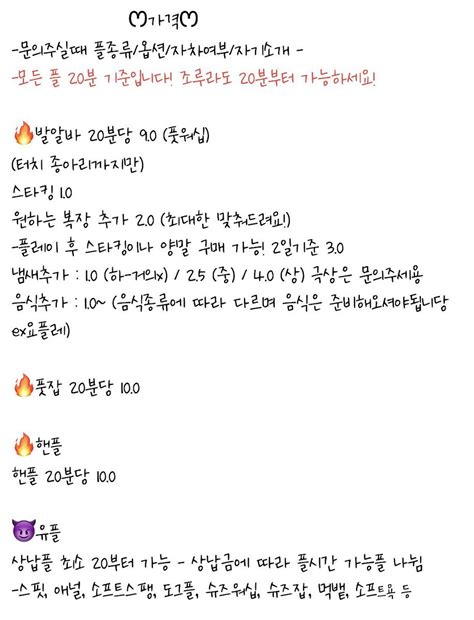 ღ가격ღ
-문의주실때 플종류/옵션/자차여부/자기소개 -
-모든 플 20분 기준입니다! 조루라도 20분부터 가능하세요!
🔥발알바 20분당 9.0 (풋워십)
(터치 종아리까지만)
스타킹 1.0
원하는 복장 추가 2.0 (최대한 맞춰드려요!)
-플레이 후 스타킹이나 양말 구매 가능! 2일기준 3.0
냄새추가 : 1.0 (하-거의x) / 2.5 (중) / 4.0 (상) 극상은 문의주세용
음식추가 : 1.0~ (음식종류에 따라 다르며 음식은 준비해오셔야됩니당
ex요플레)
🔥풋잡 20분당 10.0
🔥핸플
핸플 20분당 10.0
😈유플
상납플 최소 20부터 가능 - 상납금에 따라 플시간 가능플 나뉨
-스핏, 애널, 소프트스팽, 도그플, 슈즈워십, 슈즈잡, 먹뱉, 소프트욕 등